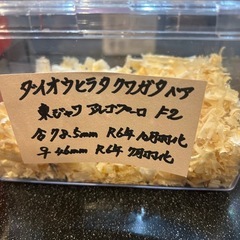 ダイオウヒラタクワガタペア
東ジャワ アルゴプーロ F2
♂78.5mm R6年 6月羽化
♀46mm R6年 7月羽化